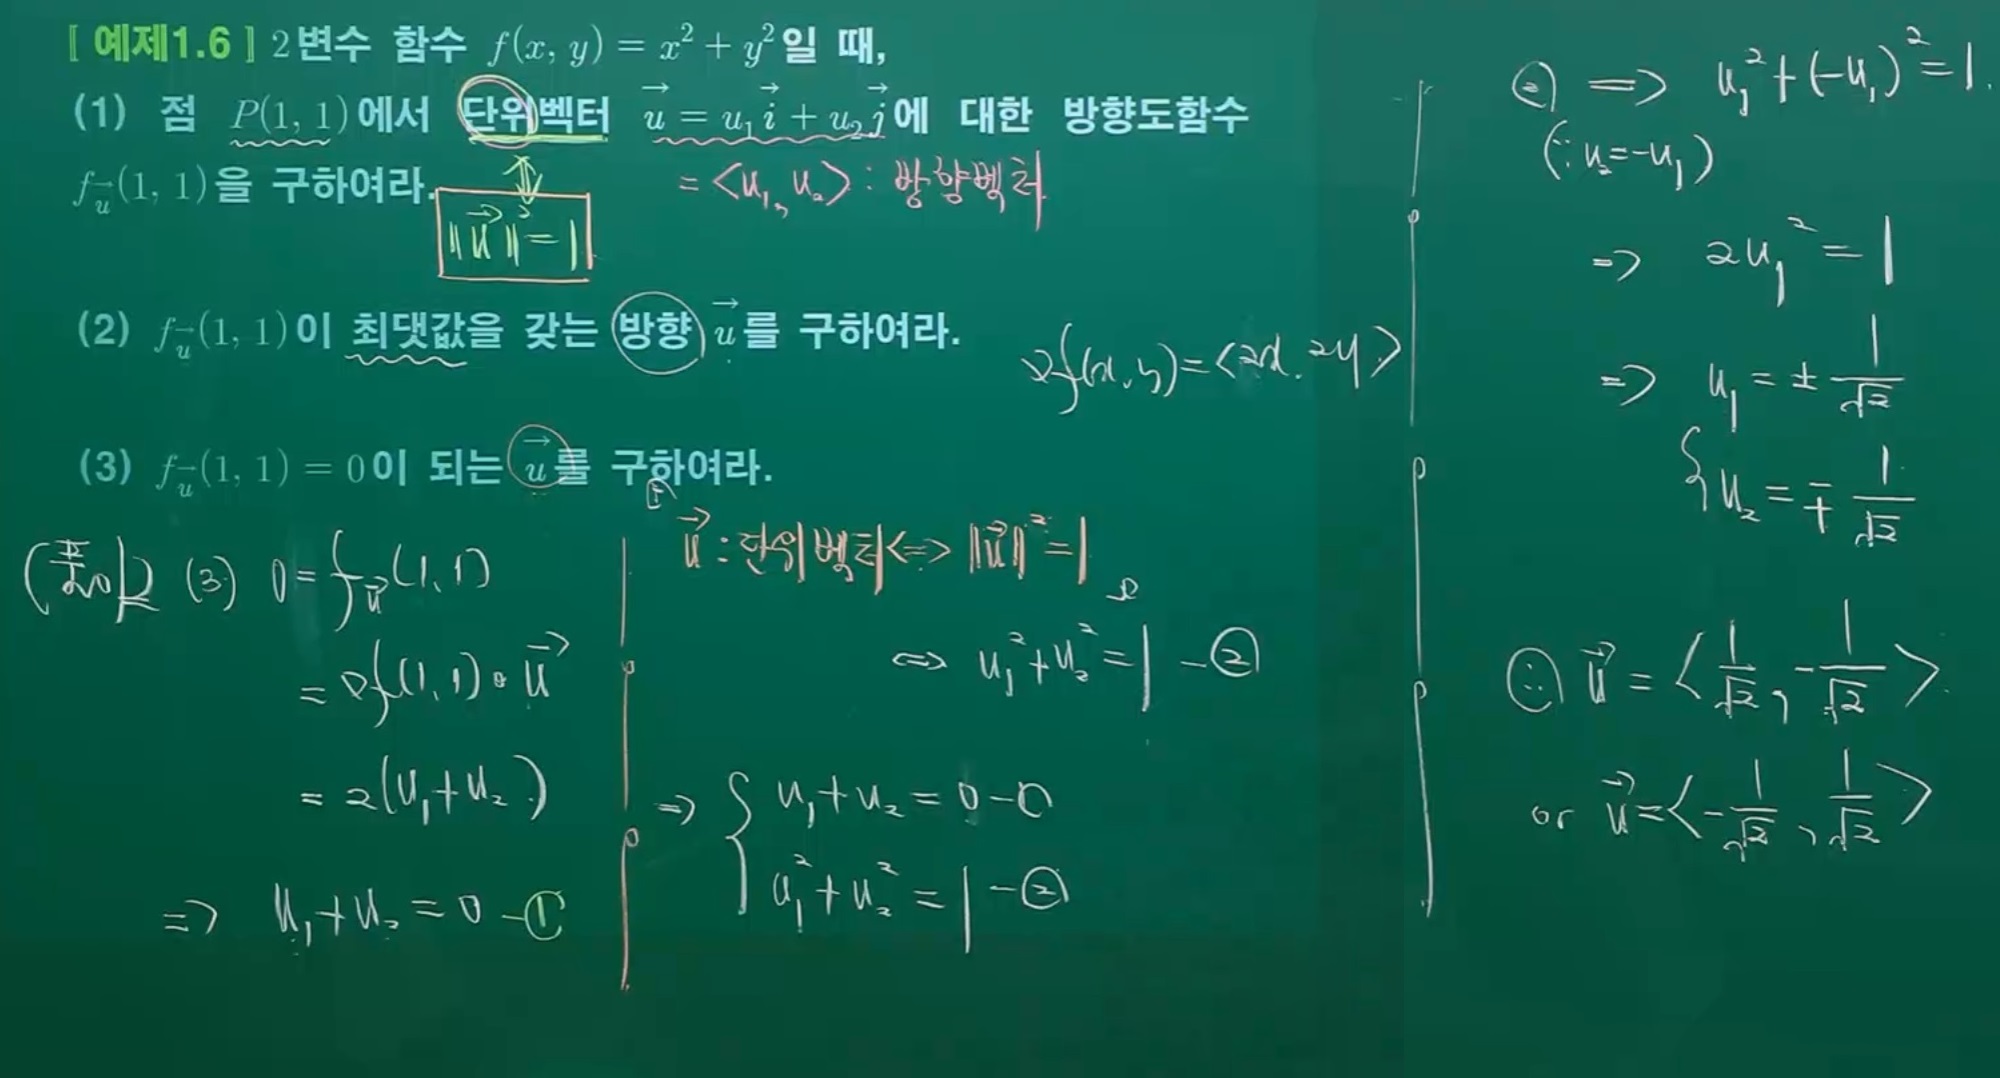 [ 예제1.6 ] 2변수 함수 f(x, y) = x² + y²일 때,
(1) 점 P(1, 1)에서 단위벡터 u⃗ = u₁i⃗ + u₂j⃗에 대한 방향도함수
f_u⃗(1, 1)을 구하여라.
= <u₁, u₂> : 방향벡터
‖u⃗‖² = 1
(2) f_u⃗(1, 1)이 최댓값을 갖는 방향 u⃗를 구하여라.
∇f(x, y) = <2x, 2y>
(3) f_u⃗(1, 1) = 0이 되는 u⃗를 구하여라.
(풀이) (3) 0 = f_u⃗(1, 1)
= ∇f(1, 1) • u⃗
= 2(u₁+u₂)
=> u₁+u₂ = 0 - ①
u⃗ : 단위벡터 <=> ‖u⃗‖² = 1
<=> u₁²+u₂² = 1 - ②
=> { u₁+u₂ = 0 - ①
u₁²+u₂² = 1 - ②
② => u₁²+(-u₁)² = 1.
(∵ u₂=-u₁)
=> 2u₁² = 1
=> u₁ = ± 1/√2
{ u₂ = ∓ 1/√2
∴ u⃗ = <1/√2, -1/√2>
or u⃗ = <-1/√2, 1/√2>